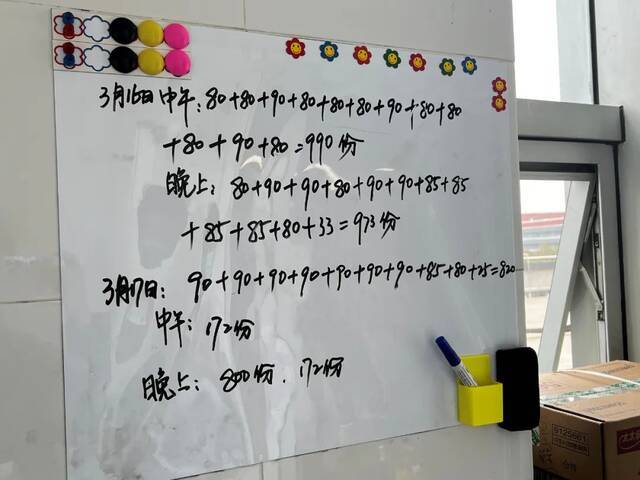 3月16日中午:80+80+90+80+80+80+90+80+80
+80+90+80=990份
晚上:80+90+90+80+90+90+85+85
+85+85+80+33=973份
3月17日:90+90+90+90+90+90+90+85+80+25=820
中午:172份
晚上:800份.172份
9125661